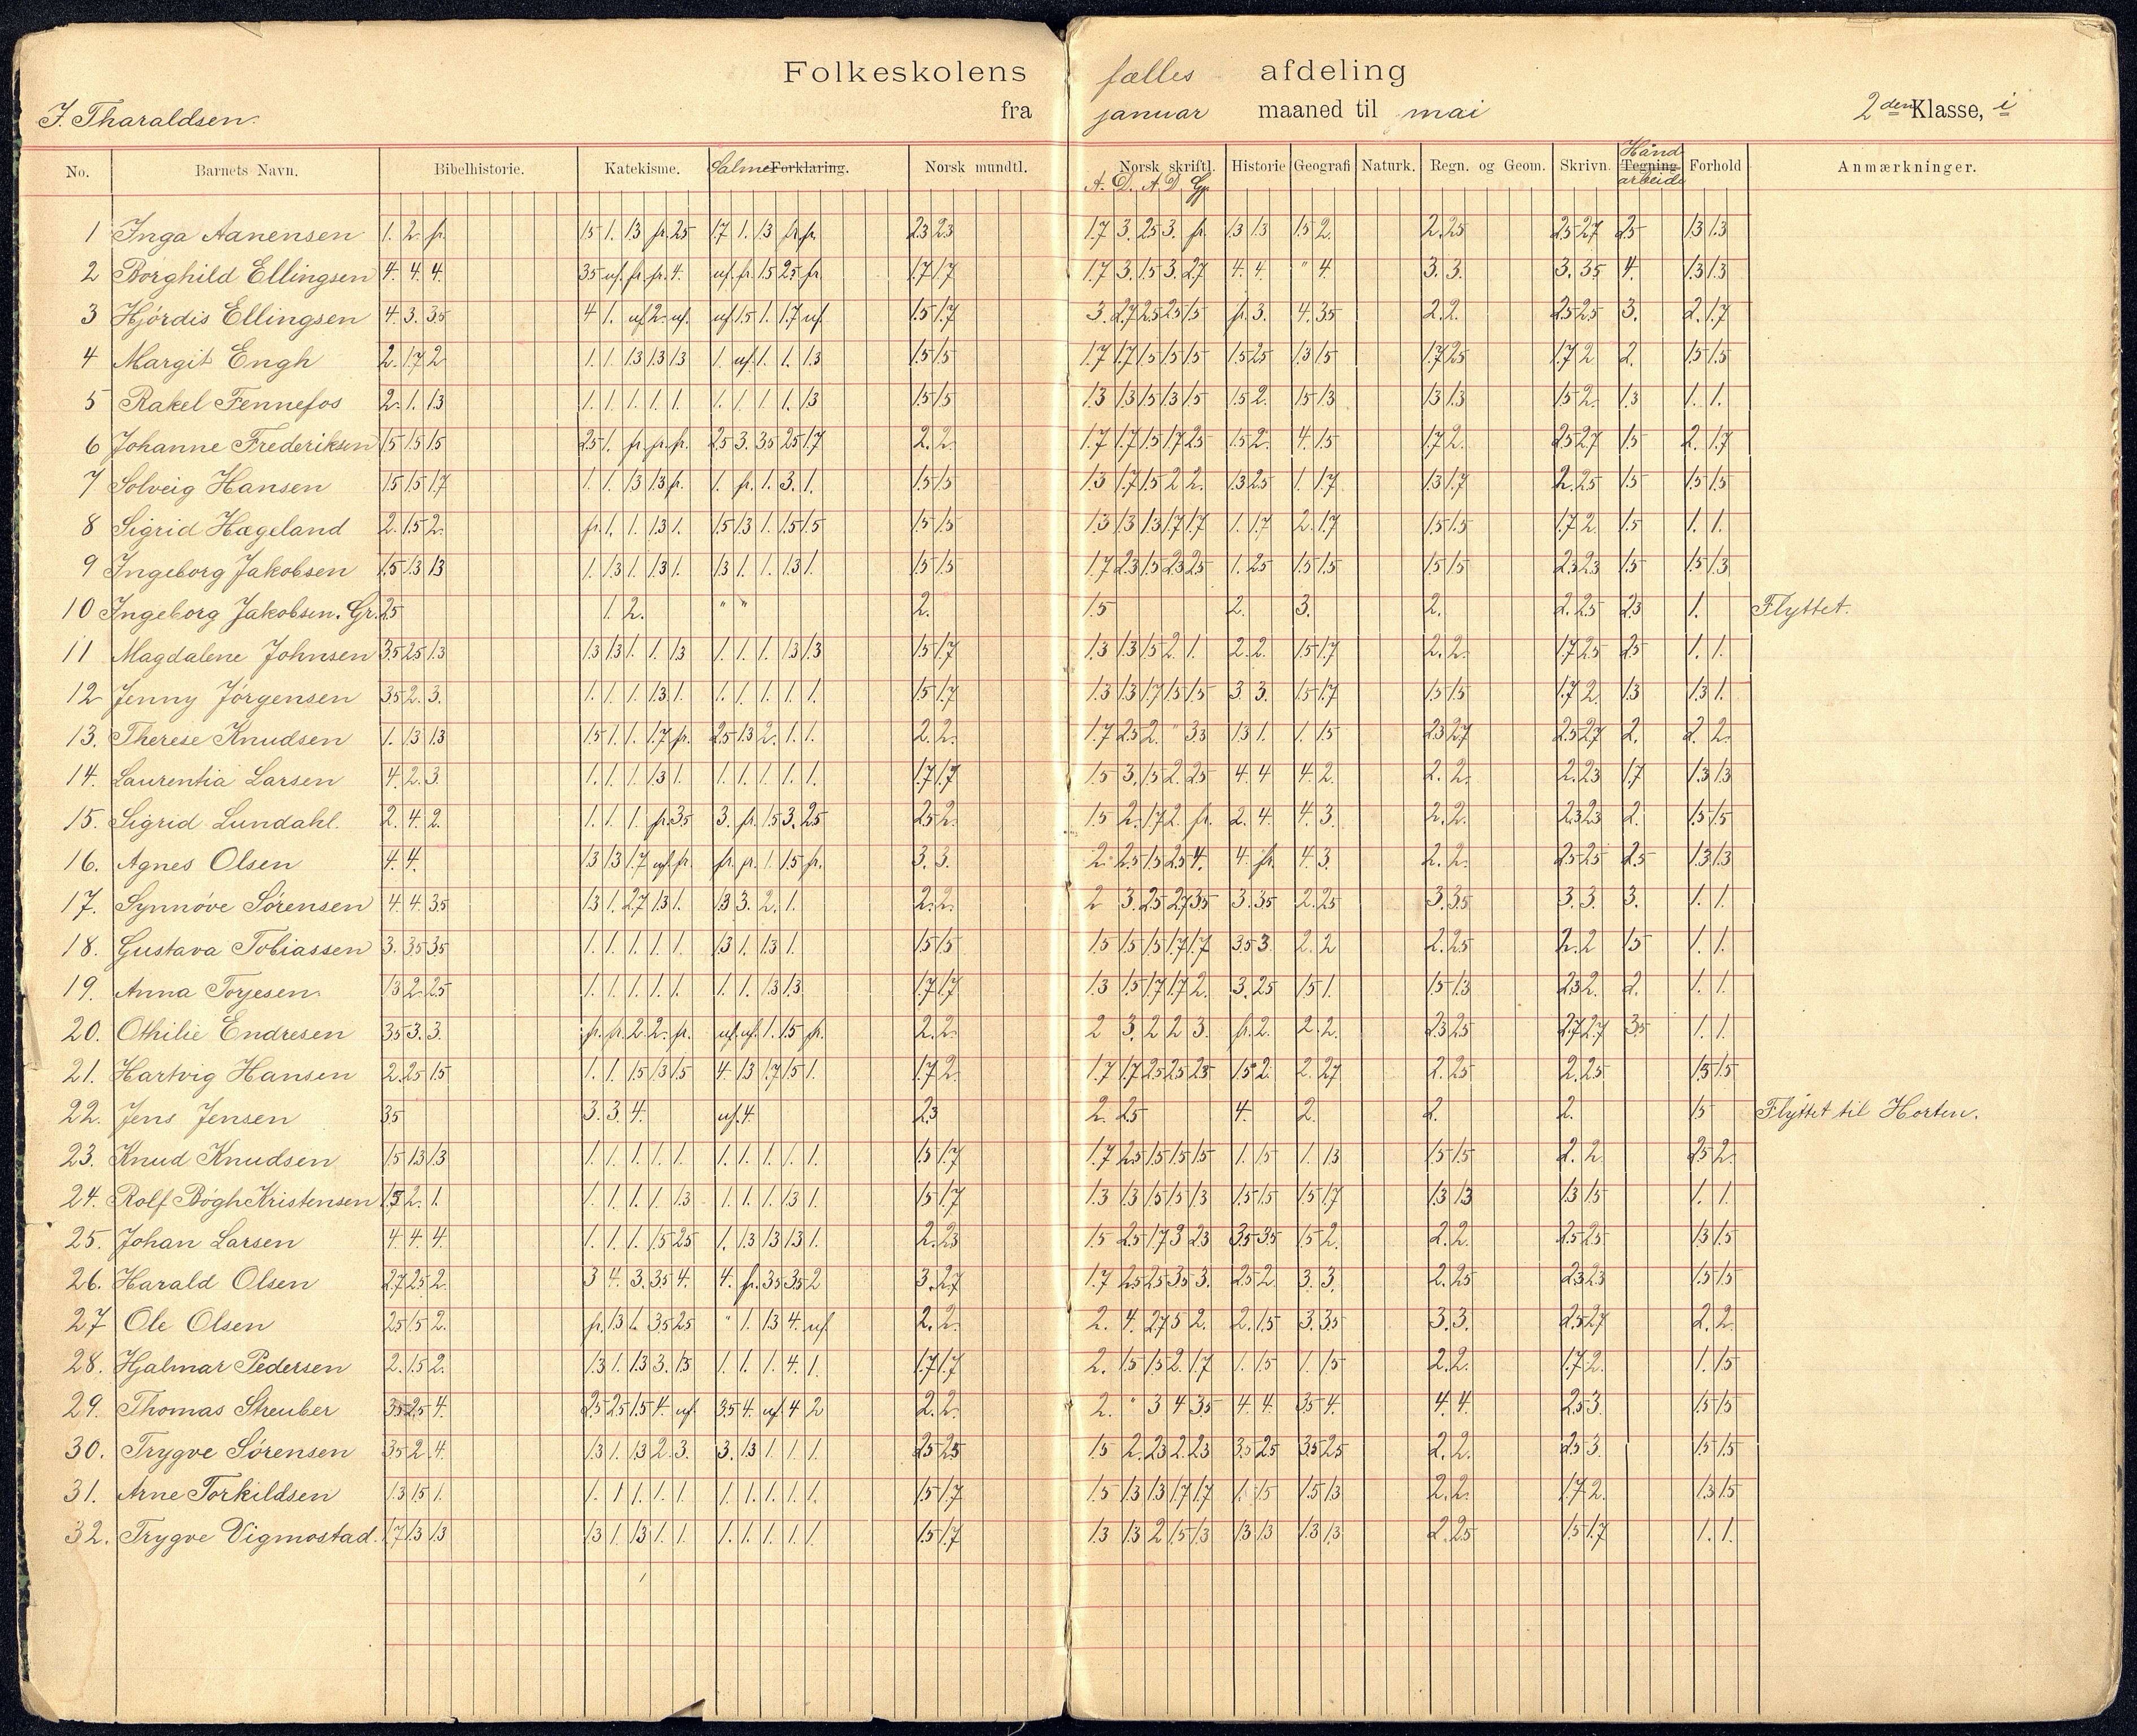 Folkeskolens fælles afdeling
J. Tharaldsen. fra januar maaned til mai 2den Klasse, i
No. Barnets Navn. Bibelhistorie. Katekisme. Salme Forklaring. Norsk mundtl. Norsk skriftl. Historie Geografi Naturk. Regn. og Geom. Skrivn. Hånd Tegning arbeide Forhold Anmærkninger.
A. D. A D Gj
1 Inga Aanensen 1. 2. fr. 1.5 1. 1.3 fr. 2.5 1.7 1. 1.3 fr. fr. 2.3 2.3 1.7 3. 2.5 3. fr. 1.3 1.3 1.5 2. 2. 2.5 2.5 2.7 2.5 1.3 1.3
2 Borghild Ellingsen 4. 4. 4. 3.5 uf. fr. fr. 4. uf. fr. 1.5 2.5 fr. 1.7 1.7 1.7 3. 1.5 3. 2.7 4. 4. " 4. 3. 3. 3. 3.5 4. 1.3 1.3
3 Hjørdis Ellingsen 4. 3. 3.5 4 1. uf. 2. uf. uf. 1.5 1. 1.7 uf. 1.5 1.7 3. 2.7 2.5 2.5 1.5 fr. 3. 4. 3.5 2. 2. 2.5 2.5 3. 2. 1.7
4 Margit Engh 2. 1.7 2 1. 1. 1.3 1.3 1.3 1. uf. 1. 1. 1.3 1.5 1.5 1.7 1.7 1.5 1.5 1.5 1.5 2.5 1.3 1.5 1.7 2.5 1.7 2 2. 1.5 1.5
5 Rakel Fennefos 2. 1. 1.3 1. 1. 1. 1. 1. 1. 1. 1. 1. 1.3 1.5 1.5 1.3 1.3 1.5 1.3 1.5 1.5 2. 1.5 1.3 1.3 1.3 1.5 2. 1.3 1. 1.
6 Johanne Frederiksen 1.5 1.5 1.5 2.5 1. fr. fr. fr. 2.5 3. 3.5 2.5 1.7 2. 2. 1.7 1.7 1.5 1.7 2.5 1.5 2. 4. 1.5 1.7 2. 2.5 2.7 1.5 2. 1.7
7 Solveig Hansen 1.5 1.5 1.7 1. 1. 1.3 1.3 fr. 1. fr. 1. 3. 1. 1.5 1.5 1.3 1.7 1.5 2 2. 1.3 2.5 1. 1.7 1.3 1.7 2. 2.5 1.5 1.5 1.5
8 Sigrid Hageland 2. 1.5 2. fr. 1. 1. 1.3 1. 1.5 1.3 1. 1.5 1.5 1.5 1.5 1.3 1.3 1.3 1.7 1.7 1. 1.7 2. 1.7 1.5 1.5 1.7 2 1.5 1. 1.
9 Ingeborg Jakobsen 1.5 1.3 1.3 1. 1.3 1. 1.3 1. 1.3 1. 1. 1.3 1. 1.5 1.5 1.7 2.3 1.5 2.3 2.5 1. 2.5 1.5 1.5 1.5 1.5 2.3 2.3 1.5 1.5 1.3
10 Ingeborg Jakobsen. Gr. 2.5 1. 2. " " 2. 1.5 2. 3. 2. 2. 2.5 2.3 1. Flyttet.
11 Magdalene Johnsen 3.5 2.5 1.3 1.3 1.3 1. 1. 1.3 1. 1. 1. 1.3 1.3 1.5 1.7 1.3 1.3 1.5 2. 1. 2. 2. 1.5 1.7 2. 2. 1.7 2.5 2.5 1. 1.
12 Jenny Jørgensen 3.5 2. 3. 1. 1. 1. 1.3 1. 1. 1. 1. 1. 1. 1.5 1.7 1.3 1.3 1.7 1.5 1.5 3 3. 1.5 1.7 1.5 1.5 1.7 2. 1.3 1.3 1.
13. Therese Knudsen 1. 1.3 1.3 1.5 1. 1. 1.7 fr. 2.5 1.3 2. 1. 1. 2. 2. 1.7 2.5 2. " 3.3 1.3 1. 1. 1.5 2.3 2.7 2.5 2.7 2. 2. 2.
14. Laurentia Larsen 4. 2. 3. 1. 1. 1. 1.3 1. 1. 1. 1. 1. 1. 1.7 1.7 1.5 3. 1.5 2. 2.5 4. 4 4. 2. 2. 2. 2. 2.3 1.7 1.3 1.3
15. Sigrid Lundahl. 2. 4. 2. 1. 1. 1. fr. 3.5 3. fr. 1.5 3. 2.5 2.5 2. 1.5 2. 1.7 2. fr. 2. 4. 4. 3. 2. 2. 2.3 2.3 2. 1.5 1.5
16. Agnes Olsen 4. 4. 1.3 1.3 1.7 uf. fr. fr. fr. 1. 1.5 fr. 3. 3. 2. 2.5 1.5 2.5 4. 4. fr. 4. 3. 2. 2. 2.5 2.5 2.5 1.3 1.3
17. Synnøve Sørensen 4. 4. 3.5 1.3 1. 2.7 1.3 1. 1.3 3. 2. 1. 2. 2. 2 3. 2.5 2.7 3.5 3. 3.5 2. 2.5 3. 3.5 3. 3. 3. 1. 1.
18. Gustava Tobiassen 3. 3.5 3.5 1. 1. 1. 1. 1. 1.3 1. 1.3 1. 1.5 1.5 1.5 1.5 1.5 1.7 1.7 3.5 3. 2. 2 2. 2.5 2. 2 1.5 1. 1.
19. Anna Torjesen. 1.3 2. 2.5 1. 1. 1. 1. 1. 1. 1. 1.3 1.3 1.7 1.7 1.3 1.5 1.7 1.7 2. 3. 2.5 1.5 1. 1.5 1.3 2.3 2. 2. 1. 1.
20. Othilie Endresen 3.5 3. 3. fr. fr. 2. 2. fr. uf. uf. 1. 1.5 fr. 2. 2. 2 3. 2 2 3. fr. 2. 2. 2. 2.3 2.5 2.7 2.7 3.5 1. 1.
21. Hartvig Hansen 2. 2.5 1.5 1. 1. 1.5 1.3 1.5 4. 1.3 1.7 1.5 1. 1.7 2. 1.7 1.7 2.5 2.5 2.3 1.5 2. 2. 2.7 2. 2.5 2. 2.5 1.5 1.5
22. Jens Jensen 3.5 3. 3. 4. uf. 4. 2.3 2. 2.5 4. 2. 2. 2. 1.5 Flyttet til Horten.
23. Knud Knudsen 1.5 1.3 1.3 1. 1. 1. 1. 1. 1. 1. 1. 1. 1. 1.5 1.7 1.7 2.5 1.5 1.5 1.5 1. 1.5 1. 1.3 1.5 1.5 2. 2. 2.5 2.
24. Rolf Bøgh Kristensen 1.5 2. 1. 1. 1. 1. 1. 1.3 1. 1. 1. 1.3 1. 1.5 1.7 1.3 1.3 1.5 1.5 1.3 1.5 1.5 1.5 1.7 1.3 1.3 1.3 1.5 1. 1.
25. Johan Larsen 4. 4. 4. 1. 1. 1. 1.5 2.5 1. 1.3 1.3 1.3 1. 2. 2.3 1.5 2.5 1.7 3 2.3 3.5 3.5 1.5 2. 2. 2. 2.5 2.5 1.3 1.5
26. Harald Olsen 2.7 2.5 2. 3 4. 3. 3.5 4. 4. fr. 3.5 3.5 2 3. 2.7 1.7 2.5 2.5 3.5 3. 2.5 2. 3. 3. 2. 2.5 2.3 2.3 1.5 1.5
27 Ole Olsen 2.5 1.5 2. fr. 1.3 1. 3.5 2.5 " 1. 1.3 4. uf. 2. 2. 2. 4. 2.7 3 2. 2. 1.5 3. 3.5 3. 3. 2.5 2.7 2. 2.
28. Hjalmar Pedersen 2. 1.5 2. 1.3 1. 1.3 3. 1.5 1. 1. 1. 4. 1. 1.7 1.7 2. 1.5 1.5 2. 1.7 1. 1.5 1. 1.5 2. 2. 1.7 2. 1. 1.5
29. Thomas Streuber 3.5 2.5 4. 2.5 2.5 1.5 4. uf. 3.5 4. uf. 4 2 2. 2. 2. " 3 4 3.5 4. 4. 3.5 4. 4. 4. 2.5 3. 1.5 1.5
30. Trygve Sørensen 3.5 2. 4. 1.3 1. 1.3 2. 3. 3. 1.3 1. 1. 1. 2.5 2.5 1.5 2. 2.3 2. 2.3 3.5 2.5 3.5 2.5 2. 2. 2.5 3. 1.5 1.5
31. Arne Torkildsen 1.3 1.5 1. 1. 1 1. 1. 1. 1. 1. 1. 1. 1. 1.5 1.7 1.5 1.3 1.3 1.7 1.7 1. 1.5 1.5 1.3 2. 2. 1.7 2. 1.3 1.5
32. Trygve Vigmostad. 1.7 1.3 1.3 1.3 1. 1.3 1. 1. 1. 1. 1. 1. 1. 1.5 1.7 1.3 1.3 2 1.5 1.3 1.3 1.3 1.3 1.3 2. 2.5 1.5 1.7 1. 1.